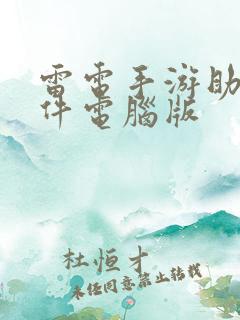 雷電手游助
件電腦版
杜恒才
未经同意禁止转载